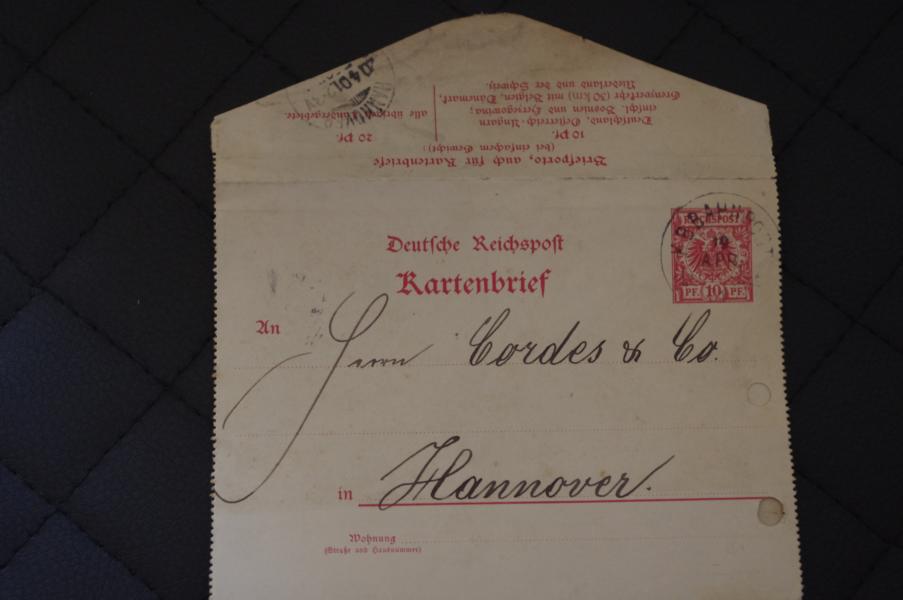 Briefporto, auch für Kartenbriefe
(bei einfachem Gewicht):
10 Pf.
Deutschland, Oesterreich-Ungarn
einschl. Bosnien und Herzegowina;
Grenzverkehr (30 km) mit Belgien, Dänemark,
Niederland und der Schweiz.
20 Pf.
alle übrigen Ländergebiete.
HANNOVER
REICHSPOST
19
APR
PF. 10 PF.
Deutsche Reichspost
Kartenbrief
An
Herrn Cordes & Co.
in Hannover.
Wohnung
(Straße und Hausnummer)